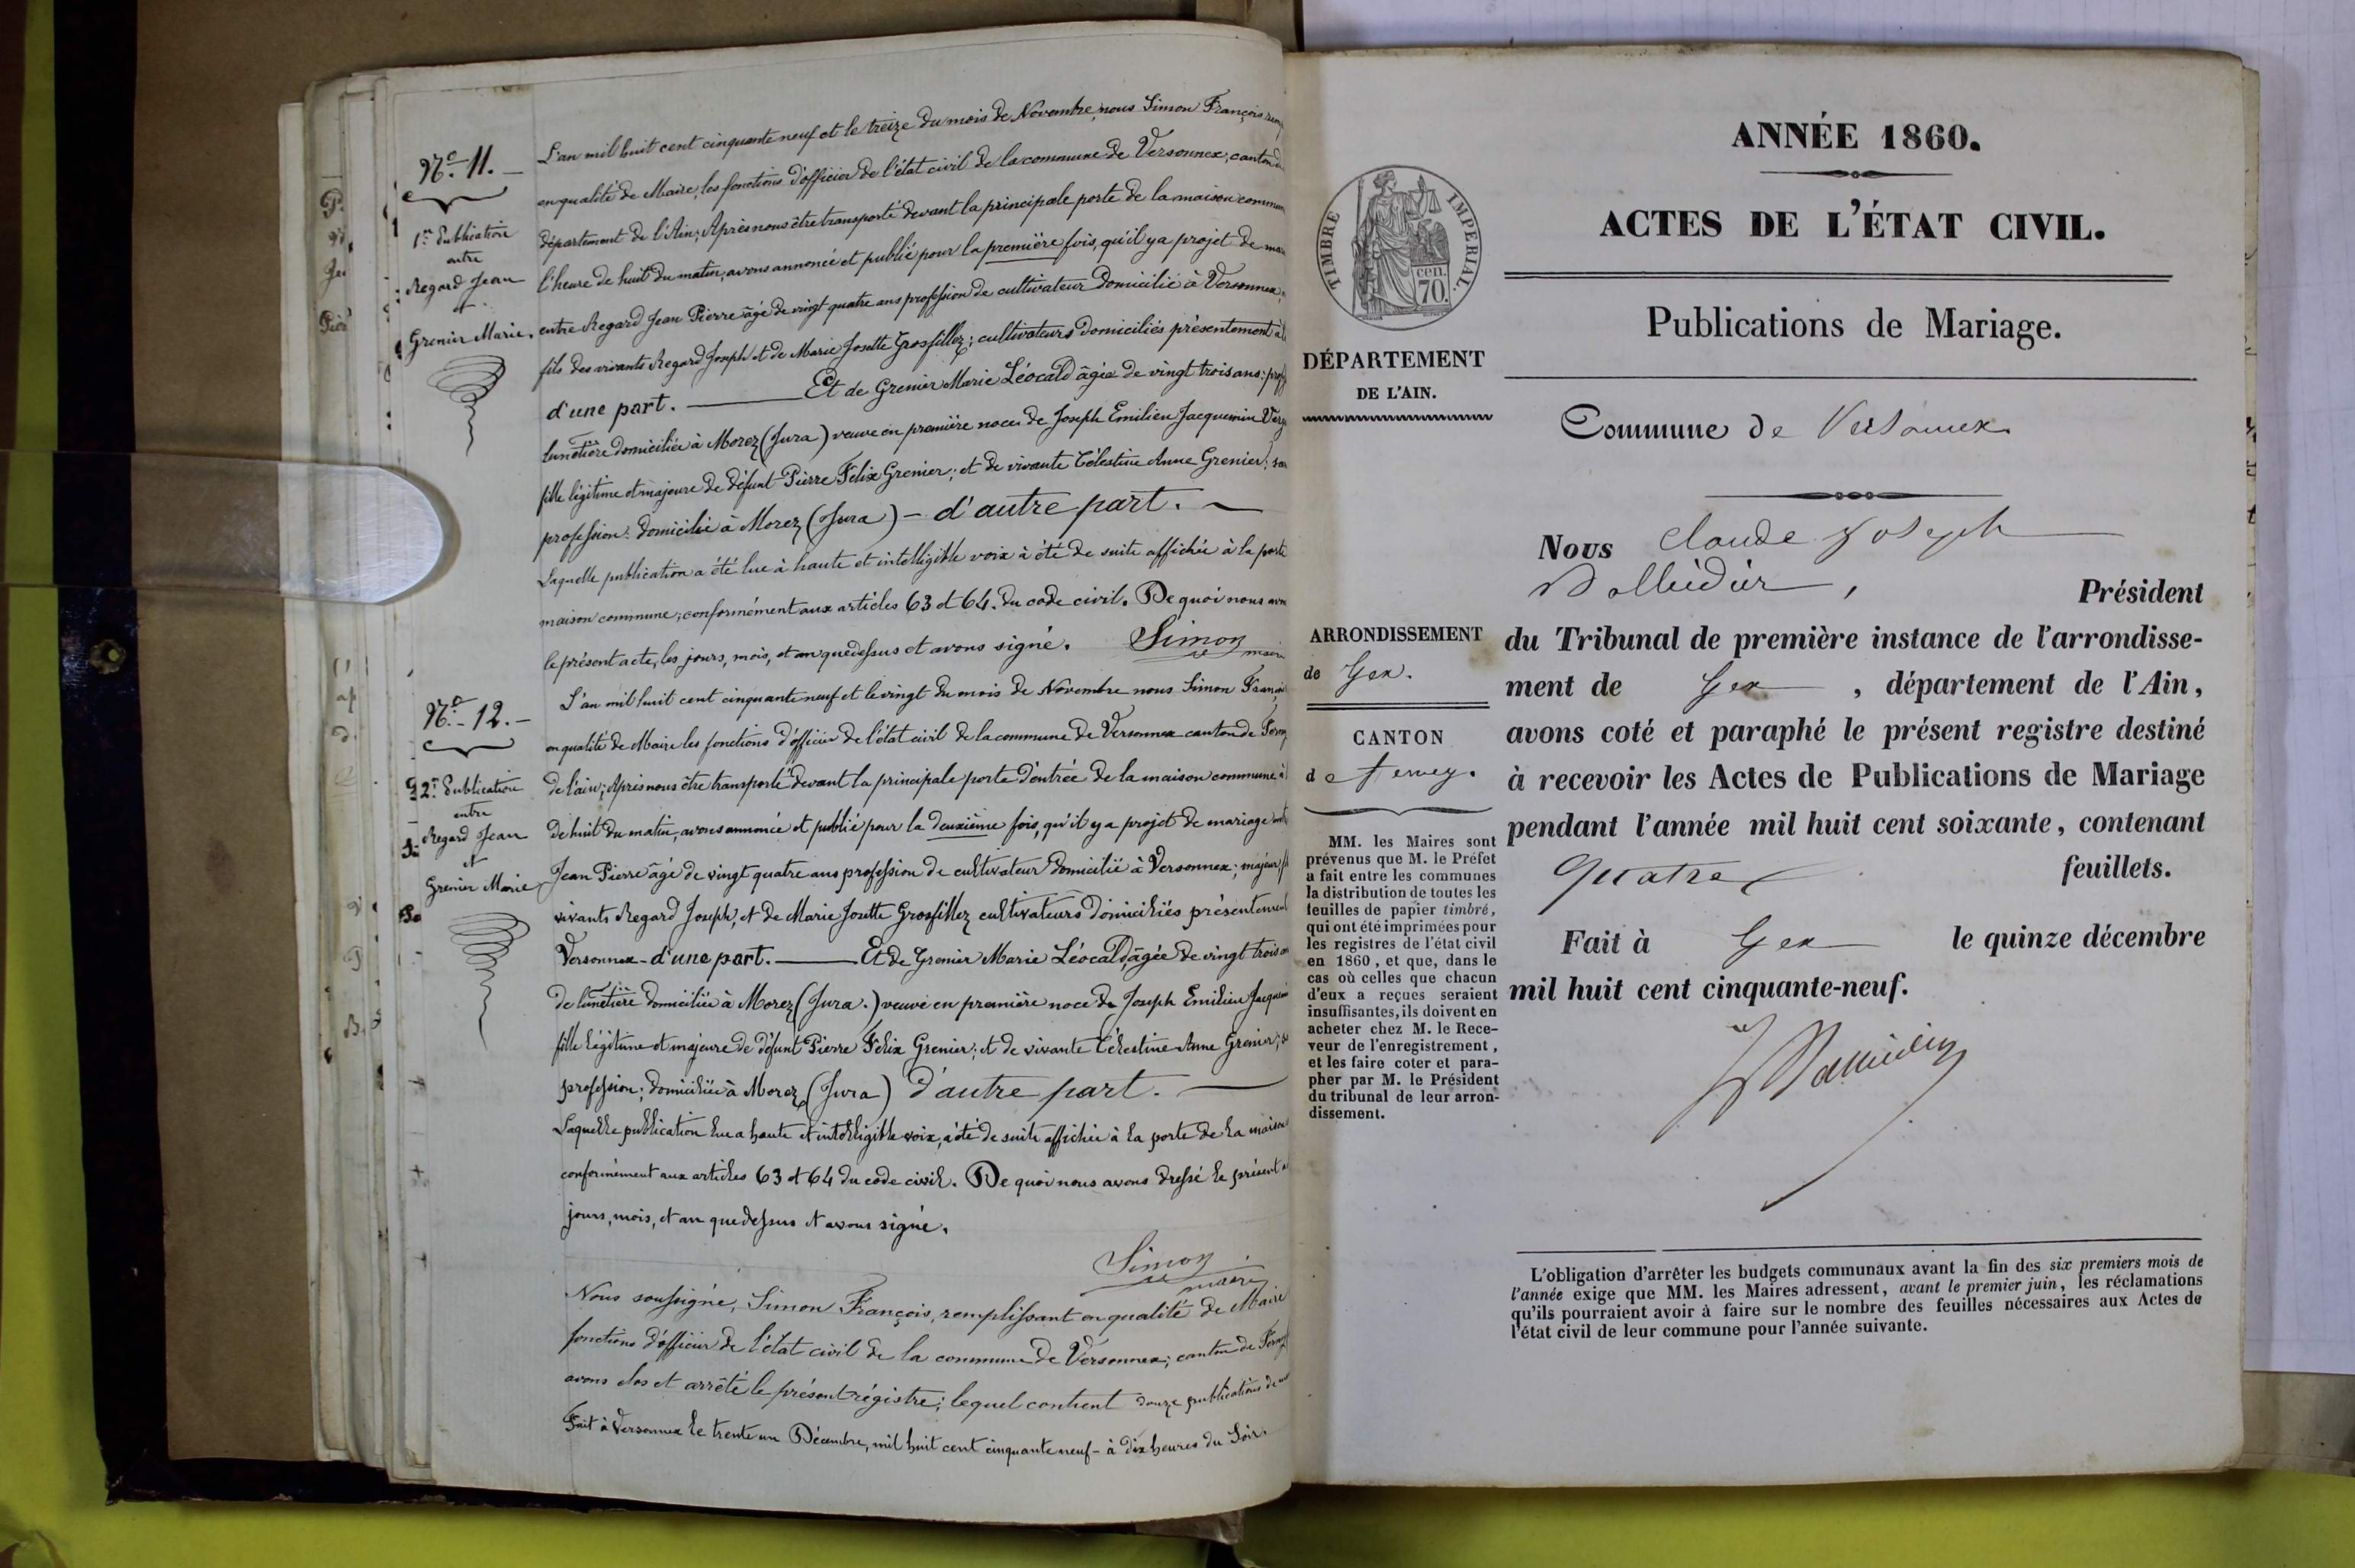 N.º 11.
1re Publication
entre
Regard Jean
et
Grenier Marie.
L'an mil huit cent cinquante neuf et le treize du mois de Novembre, nous Simon François
en qualité de Maire, les fonctions d'officier de l'état civil de la commune de Versonnex, canton de
département de l'Ain; Après nous être transporté devant la principale porte de la maison commune
l'heure de huit du matin, avons annoncé et publié pour la première fois, qu'il y a projet de
entre Regard Jean Pierre âgé de vingt quatre ans profession de cultivateur domicilié à Versonnex,
fils des vivants Regard Joseph et de Marie Josette Grosfillez; cultivateurs domiciliés présentement à
d'une part. Et de Grenier Marie Léocald âgée de vingt trois ans:
lunetière domiciliée à Morez (Jura) veuve en première noces de Joseph Emilien Jacquemin
fille légitime et majeure de défunt Pierre Félix Grenier; et de vivante Célestine Anne Grenier;
profession: domiciliée à Morez (Jura) - d'autre part.
Laquelle publication a été lue à haute et intelligible voix à été de suite affichée à la porte
maison commune; conformément aux articles 63 et 64. du code civil. De quoi nous
le présent acte, les jours, mois, et an que dessus et avons signé. Simon
maire
N.º 12.
2e Publication
entre
Regard Jean
et
Grenier Marie
L'an mil huit cent cinquante neuf et le vingt du mois de Novembre nous Simon François
en qualité de Maire les fonctions d'officier de l'état civil de la commune de Versonnex canton de
de l'ain; Après nous être transporté devant la principale porte d'entrée de la maison commune à
de huit du matin, avons annoncé et publié pour la deuxième fois, qu'il y a projet de mariage
Jean Pierre âgé de vingt quatre ans profession de cultivateur domicilié à Versonnex; majeur
vivants Regard Joseph, et de Marie Josette Grosfillez cultivateurs domiciliés présentement
Versonnex - d'une part. Et de Grenier Marie Léocald, âgée de vingt trois
de lunetière domiciliée à Morez (Jura.) veuve en première noce de Joseph Emilien
fille légitime et majeure de défunt Pierre Félix Grenier; et de vivante Célestine Anne Grenier;
profession; domiciliée à Morez (Jura) d'autre part.
Laquelle publication lue a haute et intelligible voix, a été de suite affichée à la porte de la maison
conformément aux articles 63 et 64 du code civil. De quoi nous avons dressé le présent
jours, mois, et an que dessus et avons signé.
Simon
maire
Nous soussigné, Simon François, remplissant en qualité de Maire
fonctions d'officier de l'état civil de la commune de Versonnex; canton de
avons clos et arrêté le présent régistre; lequel contient douze publications de
Fait à Versonnex le trente un Décembre, mil huit cent cinquante neuf - à dix heures du Soir.
TIMBRE IMPERIAL.
cen.
70.
DÉPARTEMENT
DE L'AIN.
ARRONDISSEMENT
de Gex.
CANTON
de Ferney.
MM. les Maires sont
prévenus que M. le Préfet
a fait entre les communes
la distribution de toutes les
feuilles de papier timbré,
qui ont été imprimées pour
les registres de l'état civil
en 1860, et que, dans le
cas où celles que chacun
d'eux a reçues seraient
insuffisantes, ils doivent en
acheter chez M. le Rece-
veur de l'enregistrement,
et les faire coter et para-
pher par M. le Président
du tribunal de leur arron-
dissement.
ANNÉE 1860.
ACTES DE L'ÉTAT CIVIL.
Publications de Mariage.
Commune de Versonnex
Nous Claude Joseph
Président
du Tribunal de première instance de l'arrondisse-
ment de Gex, département de l'Ain,
avons coté et paraphé le présent registre destiné
à recevoir les Actes de Publications de Mariage
pendant l'année mil huit cent soixante, contenant
Quatre feuillets.
Fait à Gex le quinze décembre
mil huit cent cinquante-neuf.
L'obligation d'arrêter les budgets communaux avant la fin des six premiers mois de
l'année exige que MM. les Maires adressent, avant le premier juin, les réclamations
qu'ils pourraient avoir à faire sur le nombre des feuilles nécessaires aux Actes de
l'état civil de leur commune pour l'année suivante.